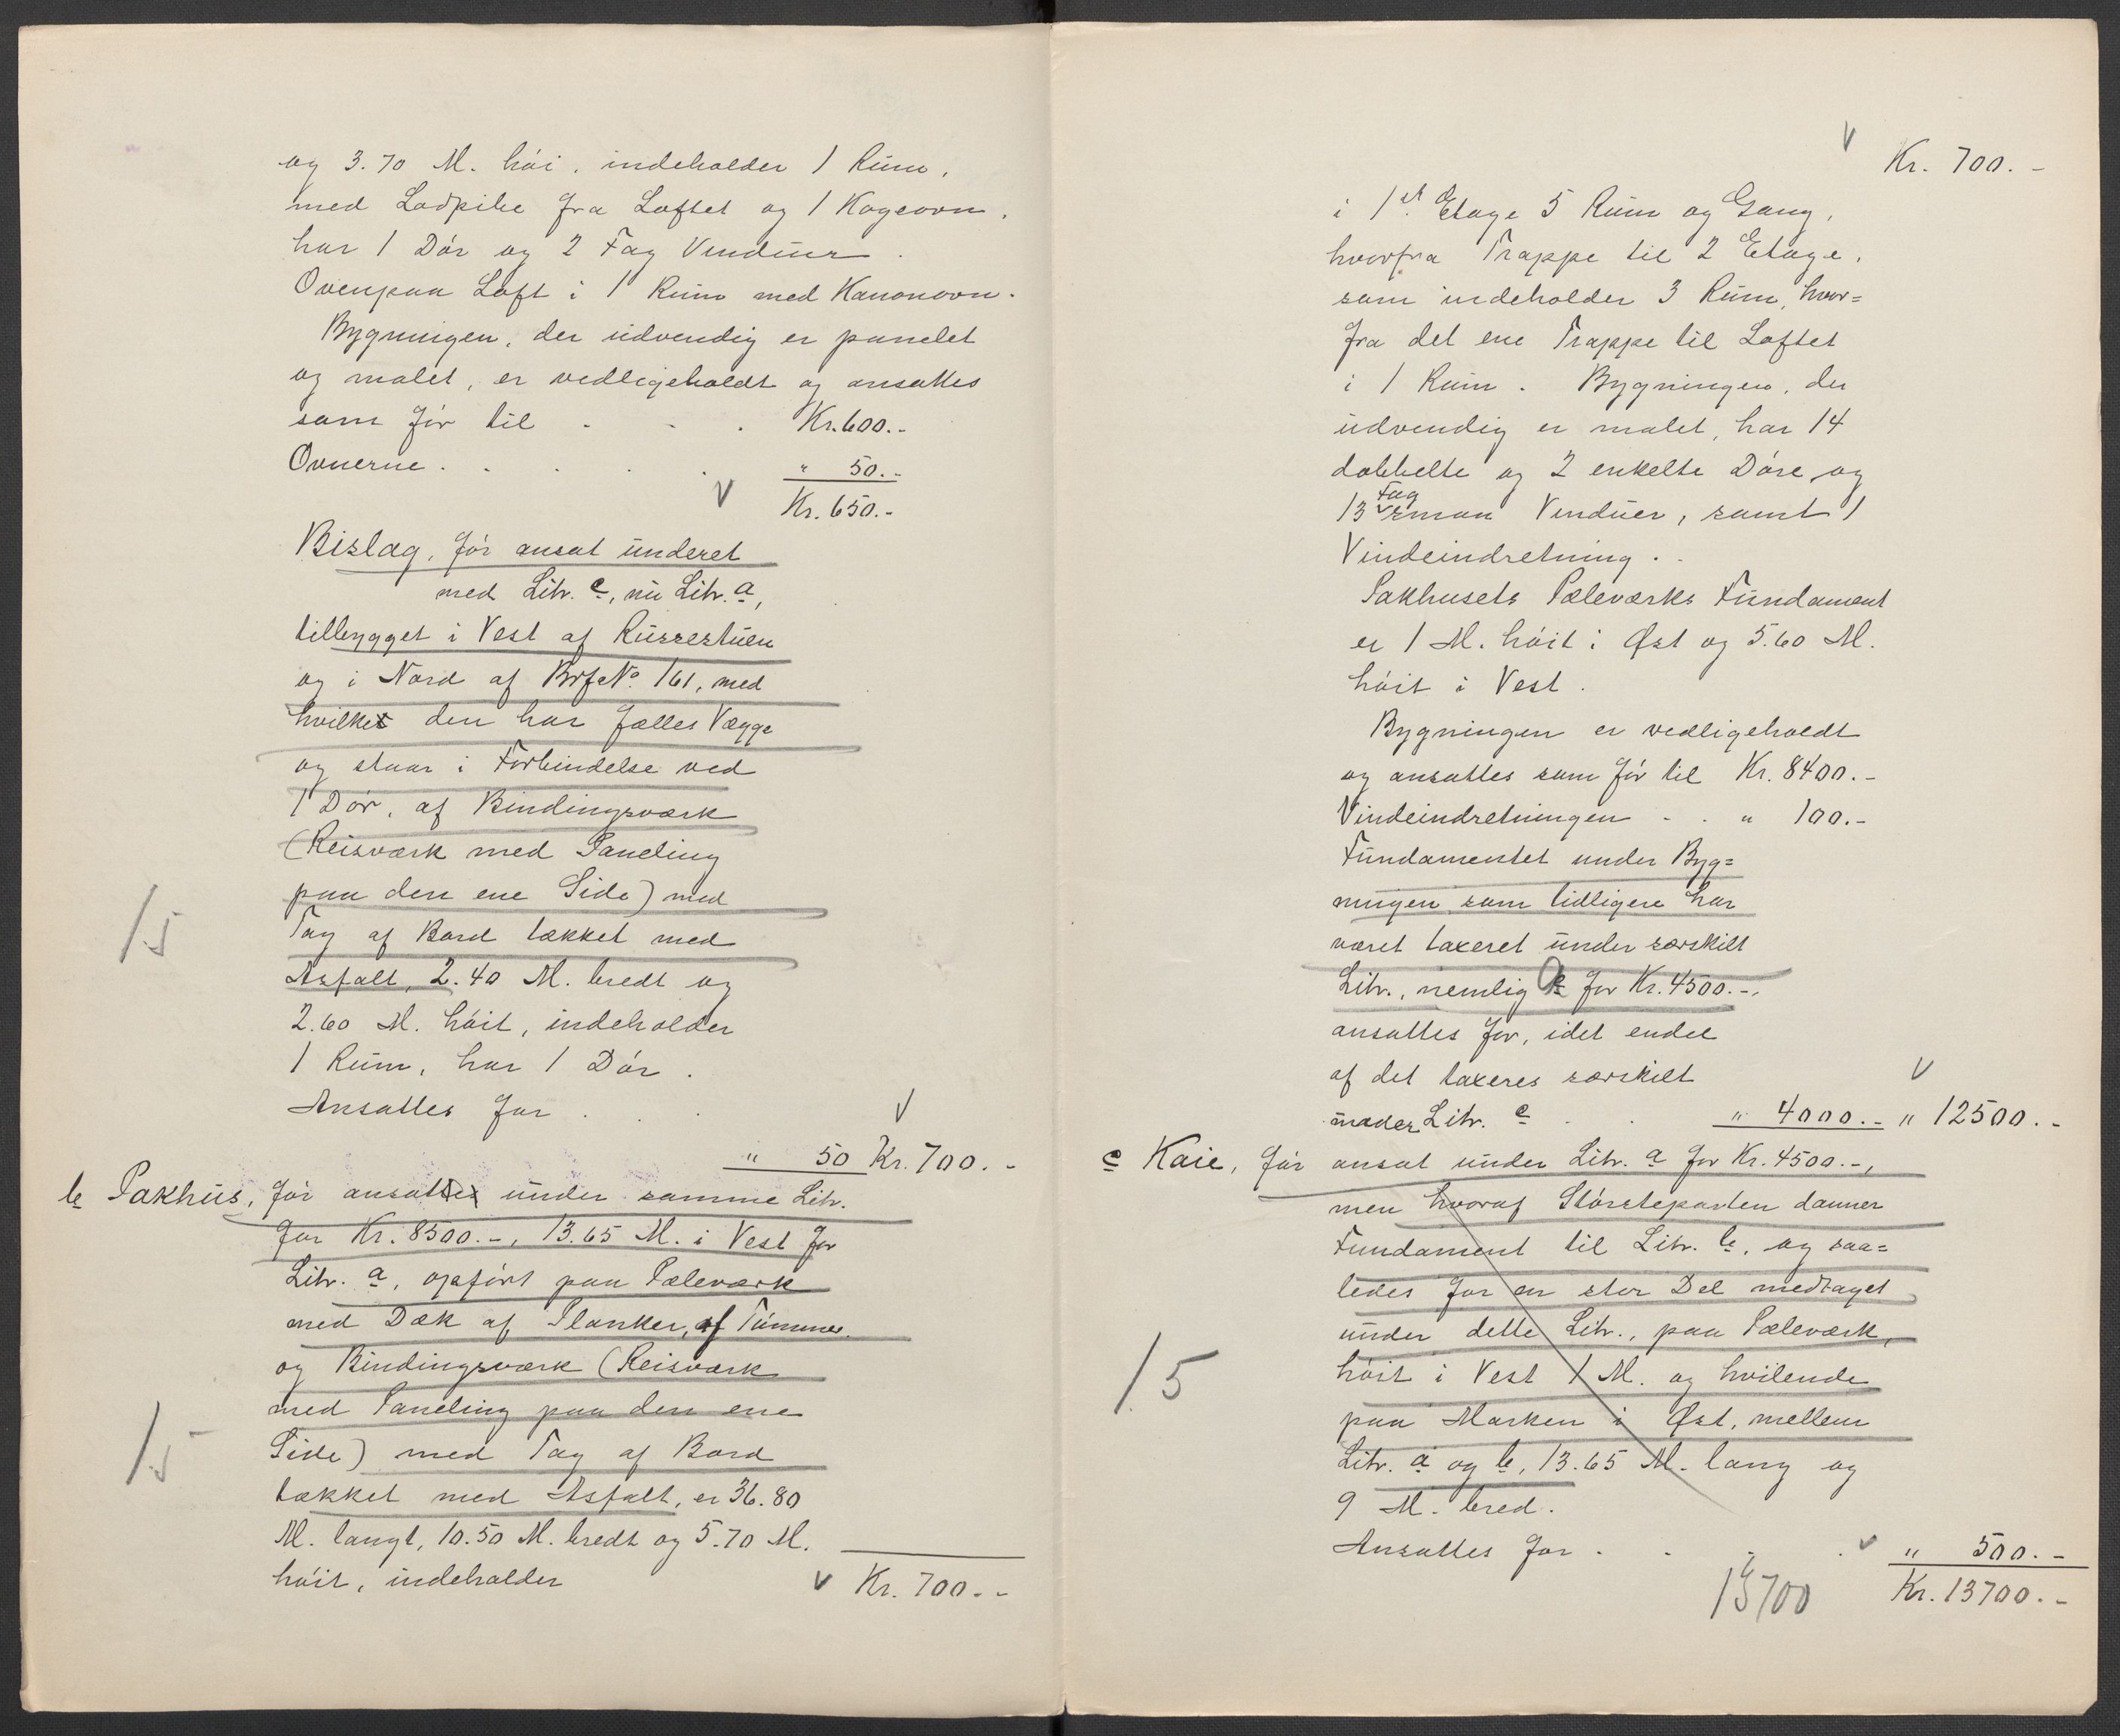 og 3.70 M. høi, indeholder 1 Rum,
med Lodpibe fra Loftet og 1 Kogeovn,
har 1 Dør og 2 Fag Vinduer.
Ovenpaa Loft i 1 Rum med Kanonovn.
Bygningen, der udvendig er panelet
og malet, er vedligeholdt og ansattes
som før til . . . Kr. 600.-
Ovnerne . . . . . " 50.-
V Kr. 650.-
Bislag, før ansat underet
med Litr. c, nu Litr. a,
tilbygget i Vest af Russestuen
og i Nord af BrfNo. 161, med
hvilket den har fælles Vægge
og staar i Forbindelse ved
1 Dør, af Bindingsværk
(Reisværk med Paneling
paa den ene Side) med
15
Tag af Bord tækket med
Asfalt, 2.40 M. bredt og
2.60 M. høit, indeholder
1 Rum, har 1 Dør.
Ansattes for . . V
" 50 Kr. 700.-
b Pakhus, før ansattes under samme Litr.
for Kr. 8500.-, 13.65 M. i Vest for
Litr. a, opført paa Pæleværk
med Dæk af Planker, af Tømmer
og Bindingsværk (Reisværk
med Paneling paa den ene
15
Side) med Tag af Bord
tækket med Asfalt, er 36.80
M. langt, 10.50 M. bredt og 5.70 M.
høit, indeholder V Kr. 700.-
V Kr. 700.-
i 1st Etage 5 Rum og Gang,
hvorfra Trappe til 2 Etage,
som indeholder 3 Rum, hvor=
fra det ene Trappe til Loftet
i 1 Rum. Bygningen, der
udvendig er malet, har 14
dobbelte og 2 enkelte Døre og
Fag
13 smaa Vinduer, samt 1
Vindeindretning.
Pakhusets Pæleværks Fundament
er 1 M. høit i Øst og 5.60 M.
høit i Vest.
Bygningen er vedligeholdt
og ansattes som før til Kr. 8400.-
Vindeindretningen . . " 100.-
Fundamentet under Byg=
ningen som tidligere har
været taxeret under særskilt
Litr., nemlig for Kr. 4500.-,
ansattes for, idet endel
af det taxeres særskilt V
under Litr. c . . " 4000.- " 12500.-
c Kaie, før ansat under Litr. a for Kr. 4500.-,
men hvoraf Størsteparten danner
Fundament til Litr. b, og saa=
ledes for en stor Del medtaget
under dette Litr., paa Pæleværk,
15
høit i Vest 1 M. og hvilende
paa Marken i Øst, mellem
Litr. a og b, 13.65 M. lang og
9 M. bred.
Ansattes for . . . . V " 500.-
13700 Kr. 13700.-